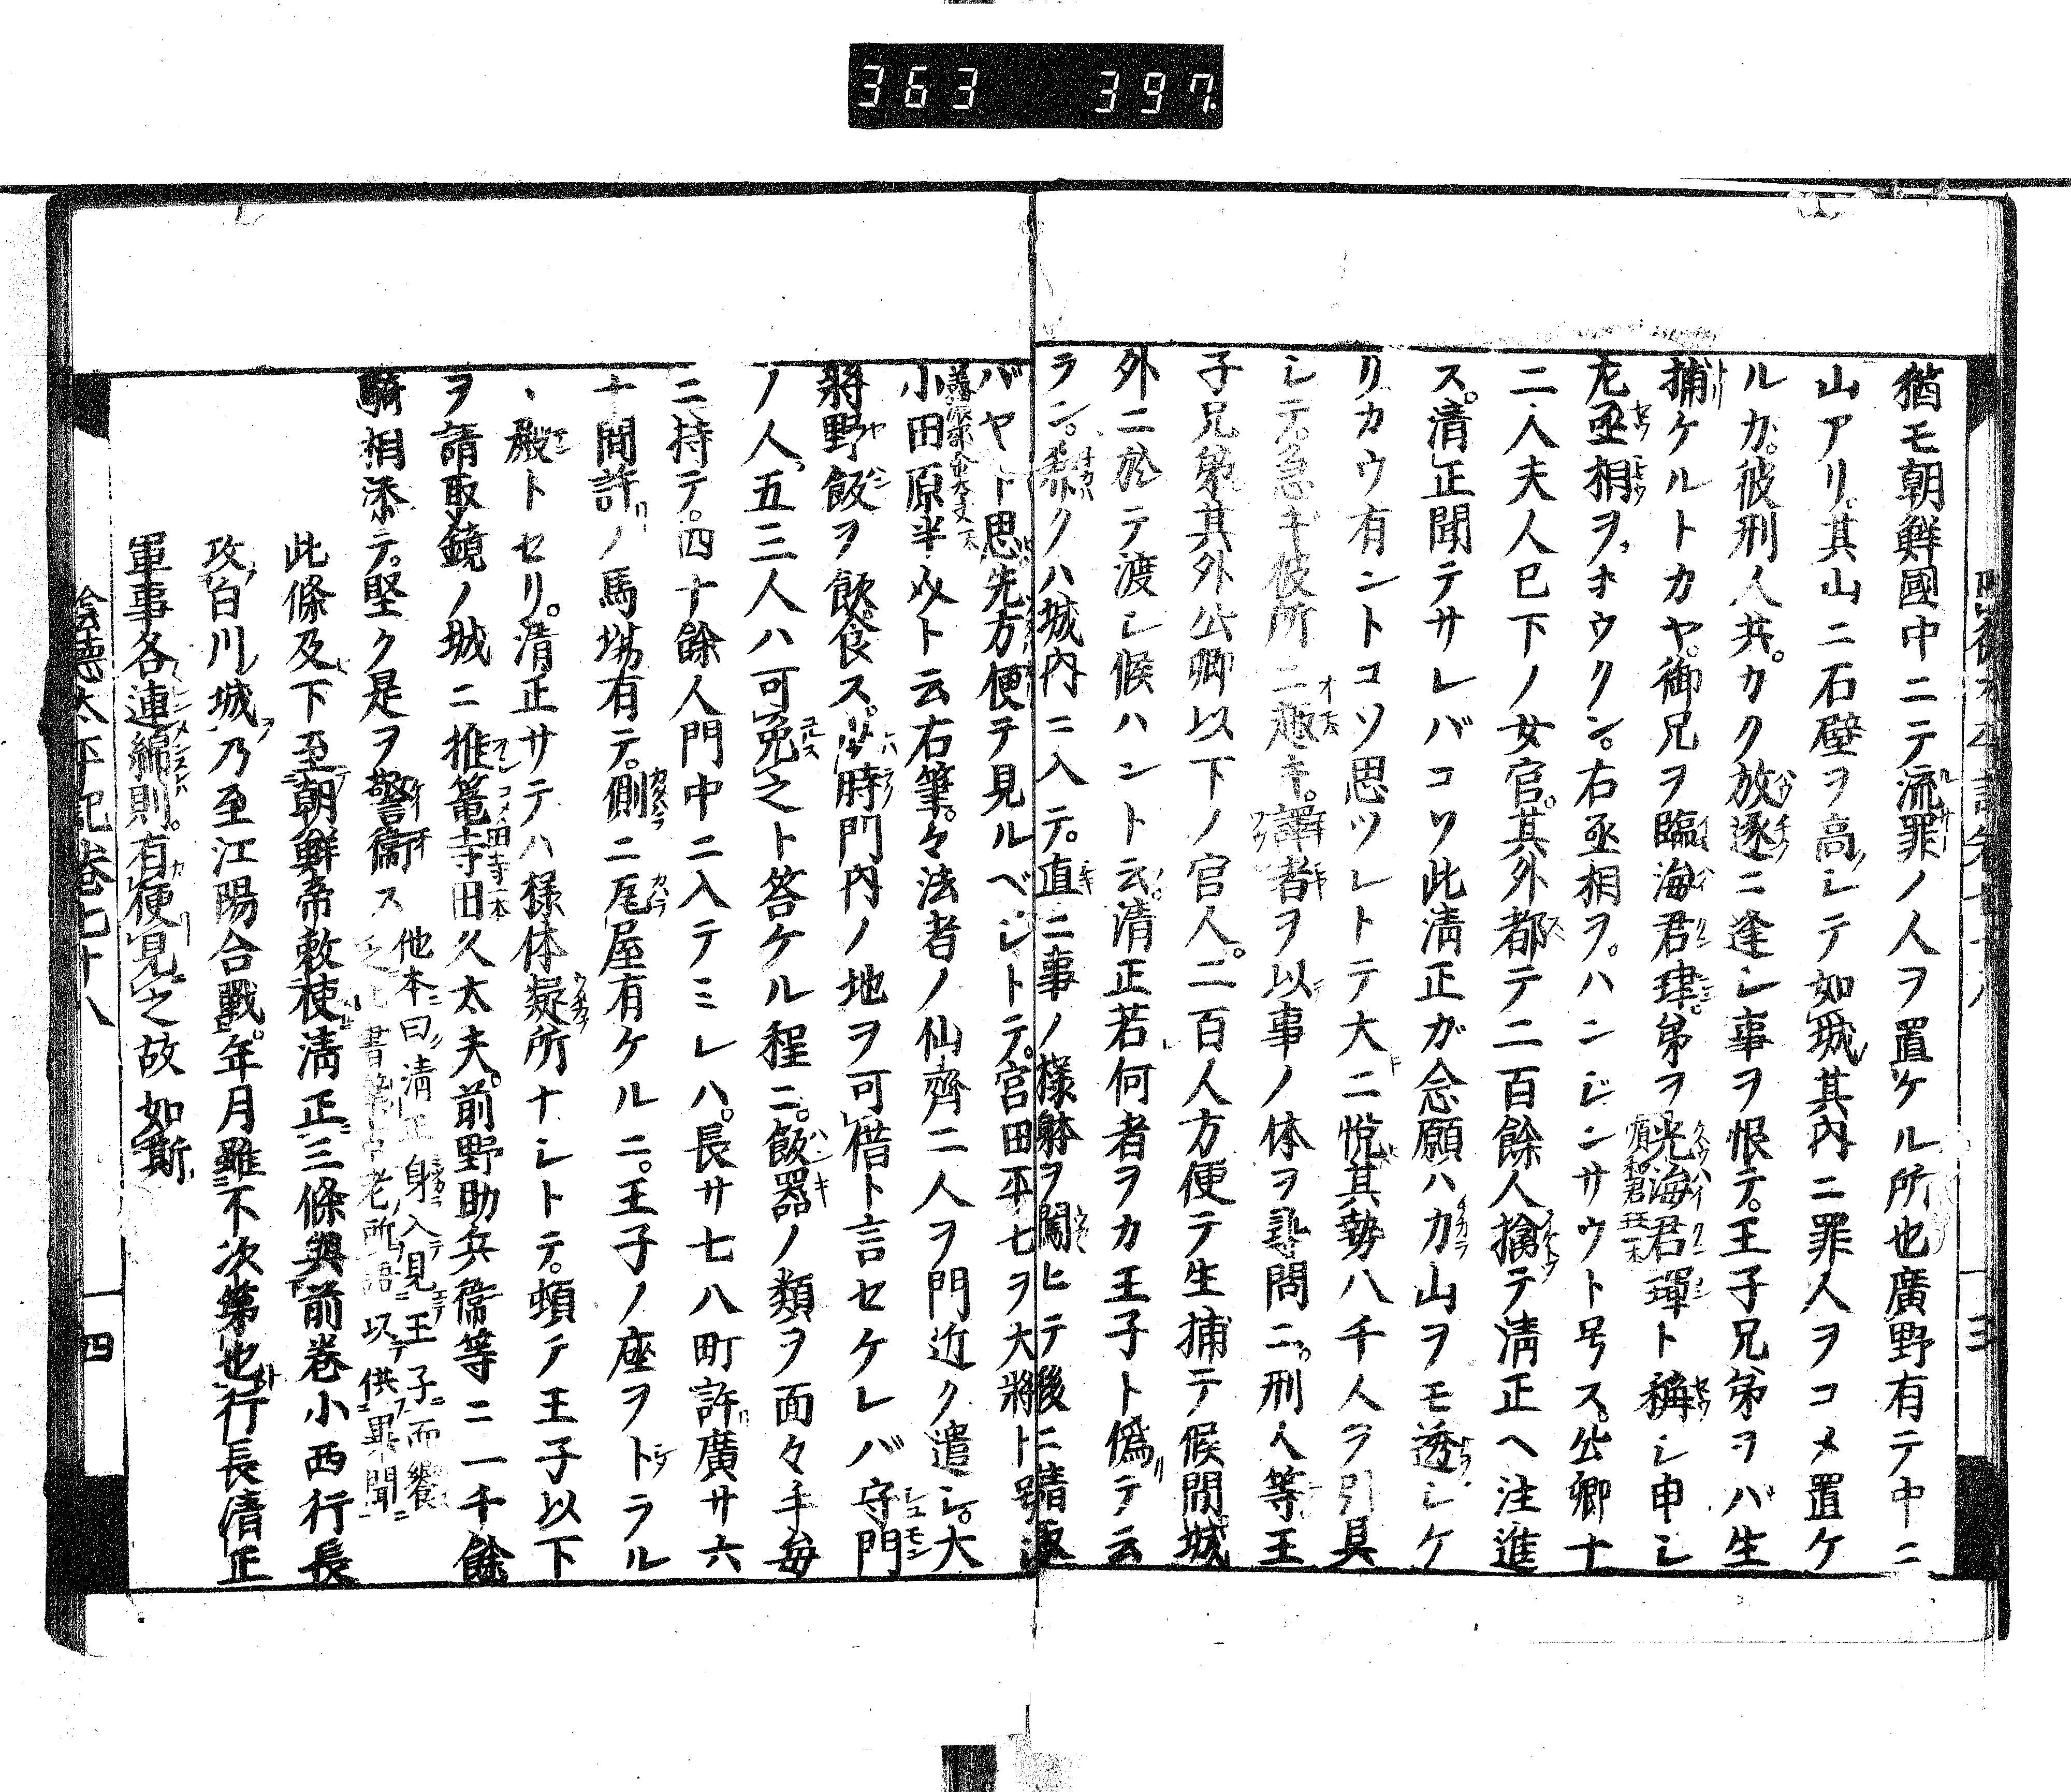 363 397
猶モ朝鮮國中ニテ流罪ノ人ヲ置ケル所也廣野有テ中ニ
山アリ。其山ニ石壁ヲ高シテ如城其内ニ罪人ヲコメ置ケ
ルカ。彼刑人共。カク放逐ニ逢シ事ヲ恨テ。王子兄弟ヲバ生
捕ケルトカヤ。御兄ヲ臨海君珒。弟ヲ光海君琿ト稱シ申シ
左丞相ヲ、ホウクン。右丞相ヲ。ハンジンサウト号ス。公卿十
二人夫人已下ノ女官。其外都テ二百餘人擒テ清正ヘ注進
ス。清正聞テサレバコソ此清正ガ念願ハカ山ヲモ透シケ
リカウ有ントコソ思ツレトテ大ニ悦其勢八千人ヲ引具
シテ。急ギ彼所ニ趣キ。譯者ヲ以事ノ体ヲ尋問ニ。刑人等王
子兄弟其外公卿以下ノ官人。二百人方便テ生捕テ候間。城
外ニ於テ渡シ候ハント云。清正若何者ヲカ王子ト偽テ云
ラン。クハ城内ニ入テ。直ニ事ノ様躰ヲ闚ヒテ後ニ請取
バヤト思先方便テ見ルベシトテ。宮田平七ヲ大將ト
小田原半ト云右筆。々法者ノ仙齊二人ヲ門近ク遣シ。大
將野飯ヲ飲食ス。少時門内ノ地ヲ可借ト言セケレバ守門
ノ人、五三人ハ可免之ト答ケル程ニ。飯器ノ類ヲ面々手毎
ニ持テ。四十餘人門中ニ入テミレハ。長サ七八町許廣サ六
十間許ノ馬場有テ。側ニ瓦屋有ケルニ。王子ノ座ヲトラル
、殿トセリ。清正サテハ様体疑所ナシトテ。頓テ王子以下
ヲ請取鏡ノ城ニ推篭寺田久太夫。前野助兵衞等ニ一千餘
騎相添テ。堅ク是ヲ警衞ス
他本曰清正身入見王子而饗
之書老所語以供異聞
此條及下至朝鮮帝敕使清正三條與前卷小西行長
攻白川城乃至江陽合戰。年月雖不次第也行長清正
軍事各連綿則。有便見之故如斯
陰德太平記卷七十八
十四